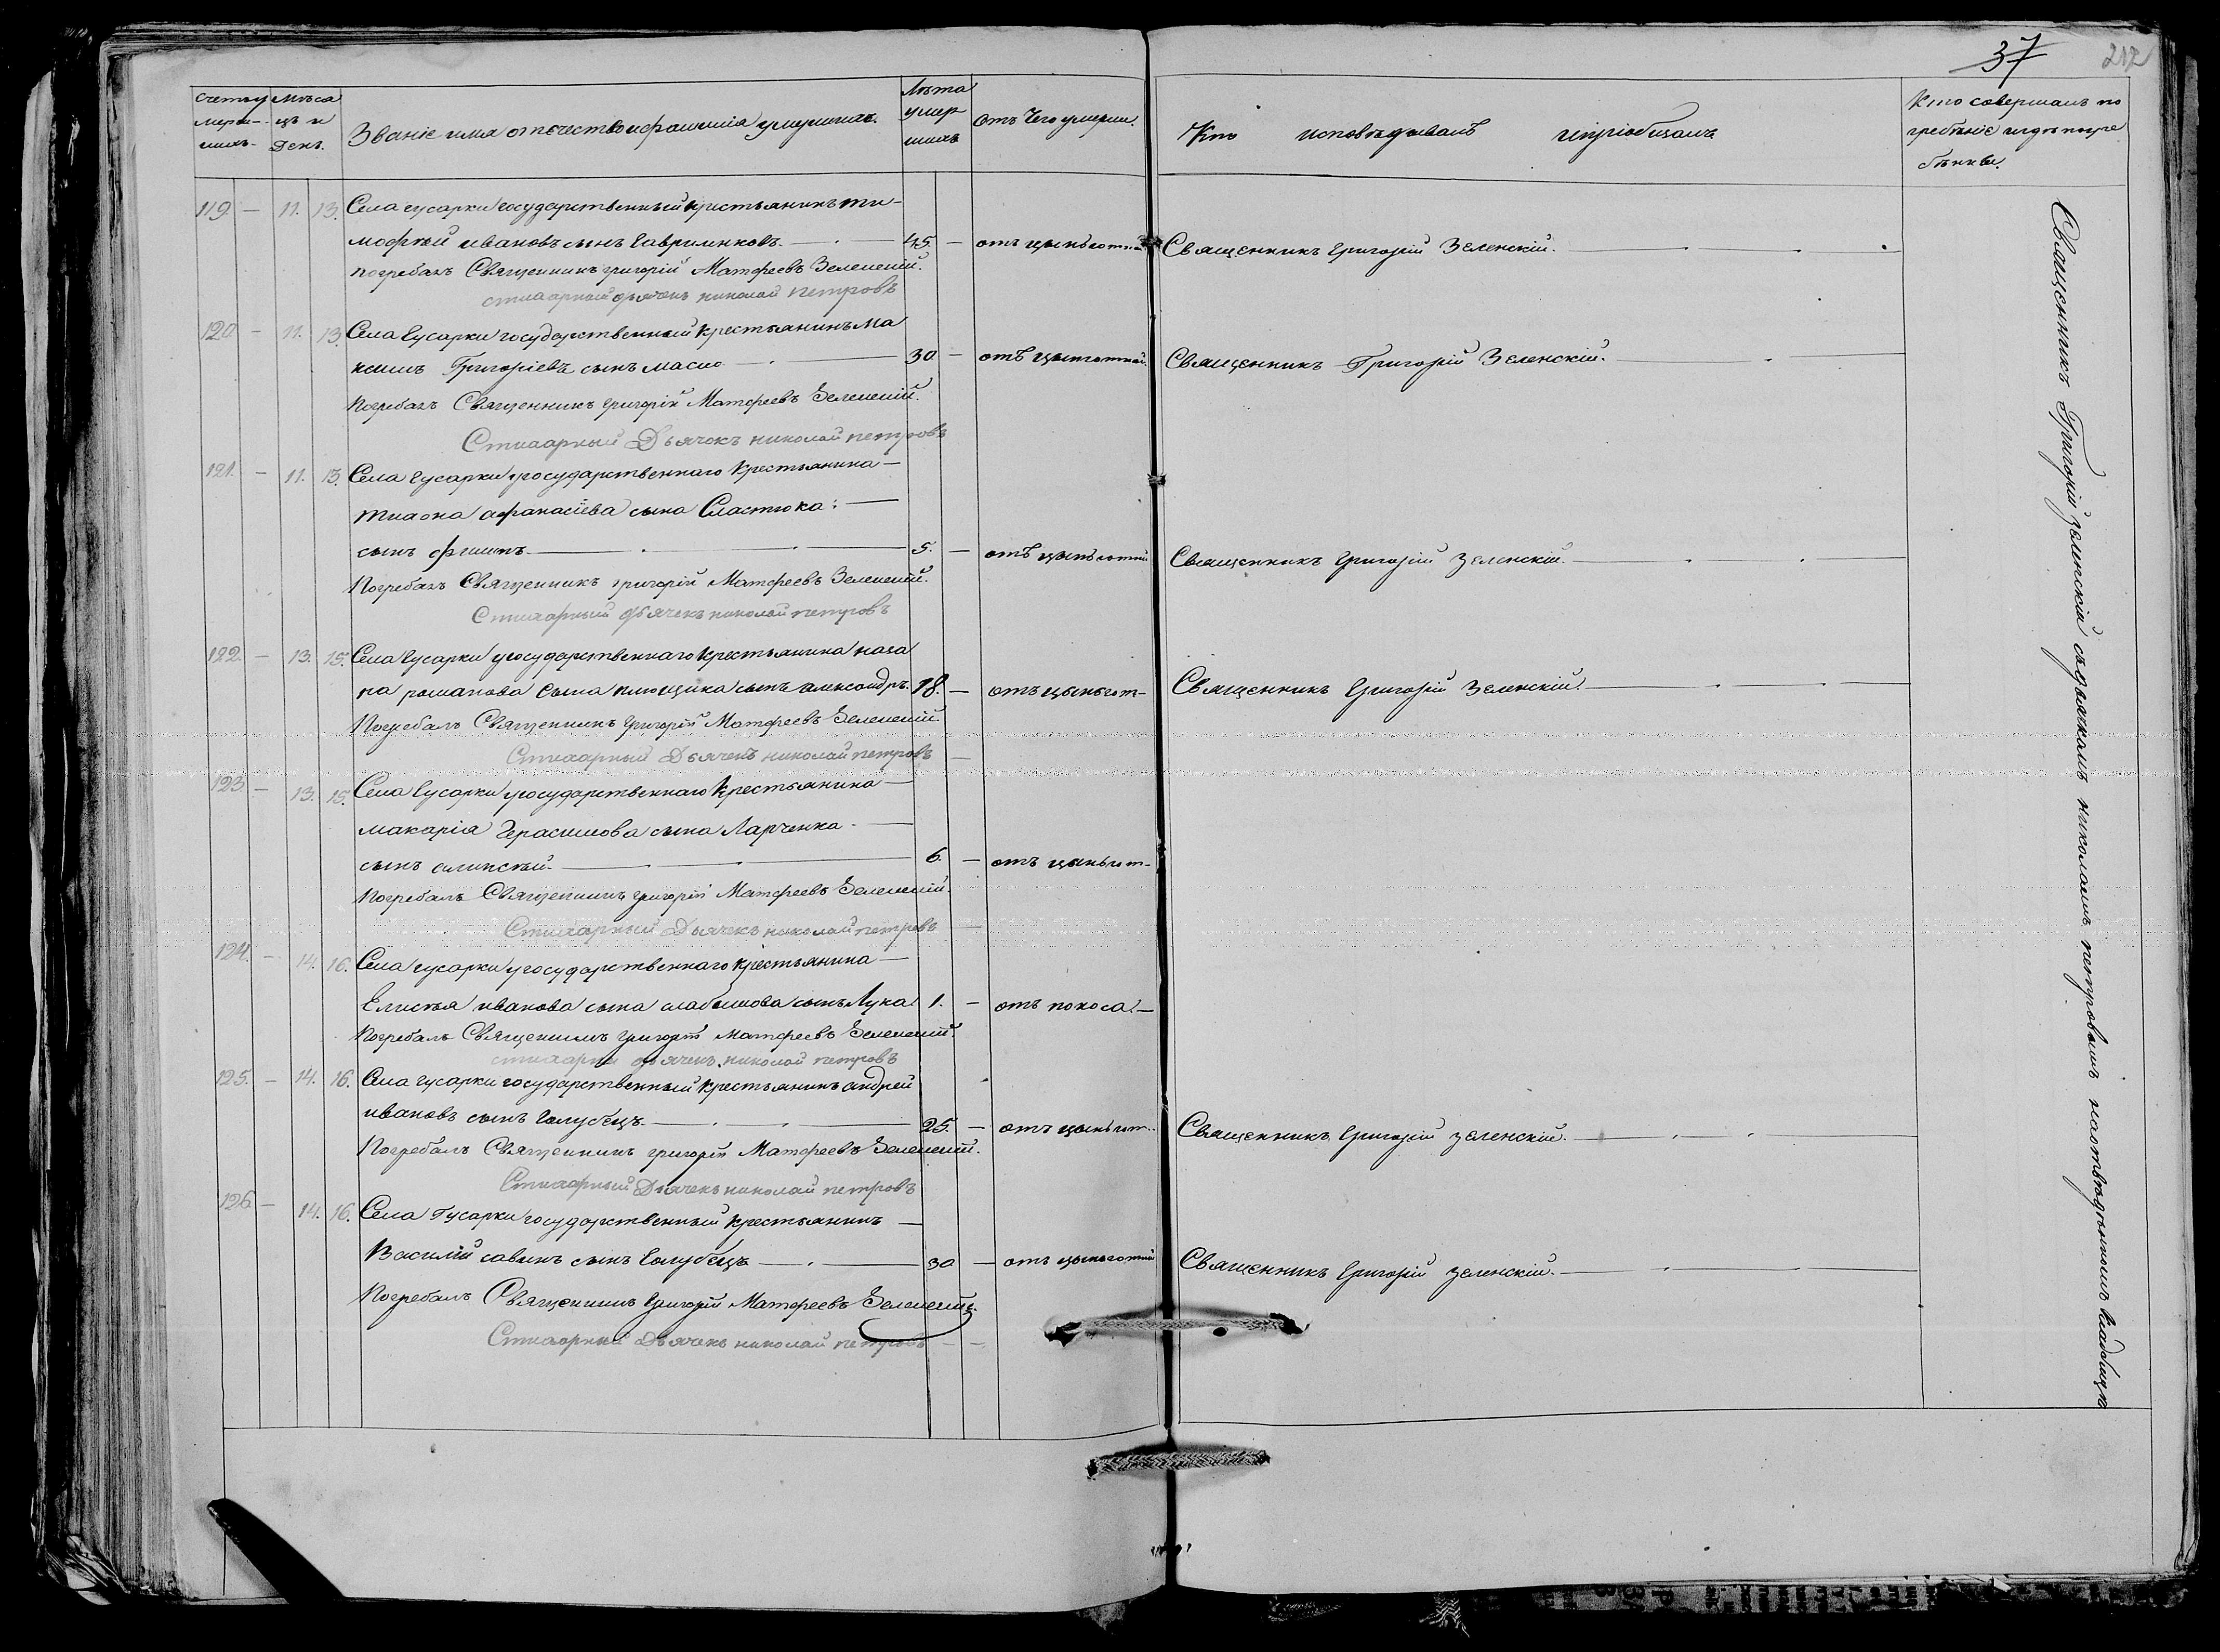 37
212
Счетъ умер-шихъ.
Мѣсяцъ и день.
Званіе имя отечество и фамилія умершихъ.
Лѣта умершихъ
Отъ Чего умерли.
Кто исповѣдывалъ и пріобщалъ
Кто совершалъ погребѣніе и гдѣ погребѣнны.
119 — 11. 13. Села гусарки государственный крестьянинъ ти-
мофѣй ивановъ сынъ гавриленковъ — 45. — отъ цынготной Священникъ Григорій Зеленскій.
Погребалъ Священникъ григорій Матфеевъ Зеленскій.
стихарный дьячекъ николай петровъ
120 — 11. 13. Села Гусарки государственный крестьянинъ Ма
ксимъ Григоріевъ сынъ масло — 30 — отъ цынготной. Священникъ Григорій Зеленскій.
Погребалъ Священникъ григорій Матфеевъ Зеленскій.
Стихарный Дьячокъ николай петровъ
121. — 11. 13. Села гусарки государственнаго крестьянина —
афанасіева сына Сластюка: —
сынъ — 5. — отъ цынготной Священникъ Григорій Зеленскій.
Погребалъ Священникъ григорій Матфеевъ Зеленскій.
Стихарный дьячекъ николай петровъ
122 — 13. 15. Села Гусарки государственнаго крестьянина наза
ра романова сына сынъ александръ. 18. — отъ цынгот- Священникъ Григорій Зеленскій.
Погребалъ Священникъ григорій Матфеевъ Зеленскій.
Стихарный Дьячекъ николай петровъ —
123 — 13. 15. Села Гусарки государственнаго крестьянина —
макарія Герасимова сына Ларченка —
сынъ алексѣй. — 6. — отъ цынгот-
Погребалъ Священникъ григорій Матфеевъ Зеленскій.
Стихарный Дьячекъ николай петровъ —
124. — 14. 16. Села гусарки государственнаго крестьянина —
Елисѣя иванова сына сынъ Лука 1. — отъ поноса. —
Погребалъ Священникъ григорій Матфеевъ Зеленскій.
стихарный дьячекъ николай петровъ
125. — 14. 16. Села гусарки государственный крестьянинъ андрей
ивановъ сынъ Голубецъ — 25. — отъ цынгот. Священникъ Григорій Зеленскій.
Погребалъ Священникъ григорій Матфеевъ Зеленскій.
Стихарный Дьячекъ николай петровъ
126 — 14. 16. Села Гусарки государственный крестьянинъ —
Василій савинъ сынъ Голубецъ — 30 — отъ цынготной Священникъ Григорій Зеленскій.
Погребалъ Священникъ Григорій Матфеевъ Зеленскій.
Стихарный Дьячекъ николай петровъ — —
Священникъ Григорій Зеленскій съ дьячкамъ николаемъ петровымъ на отведенномъ кладбищѣ